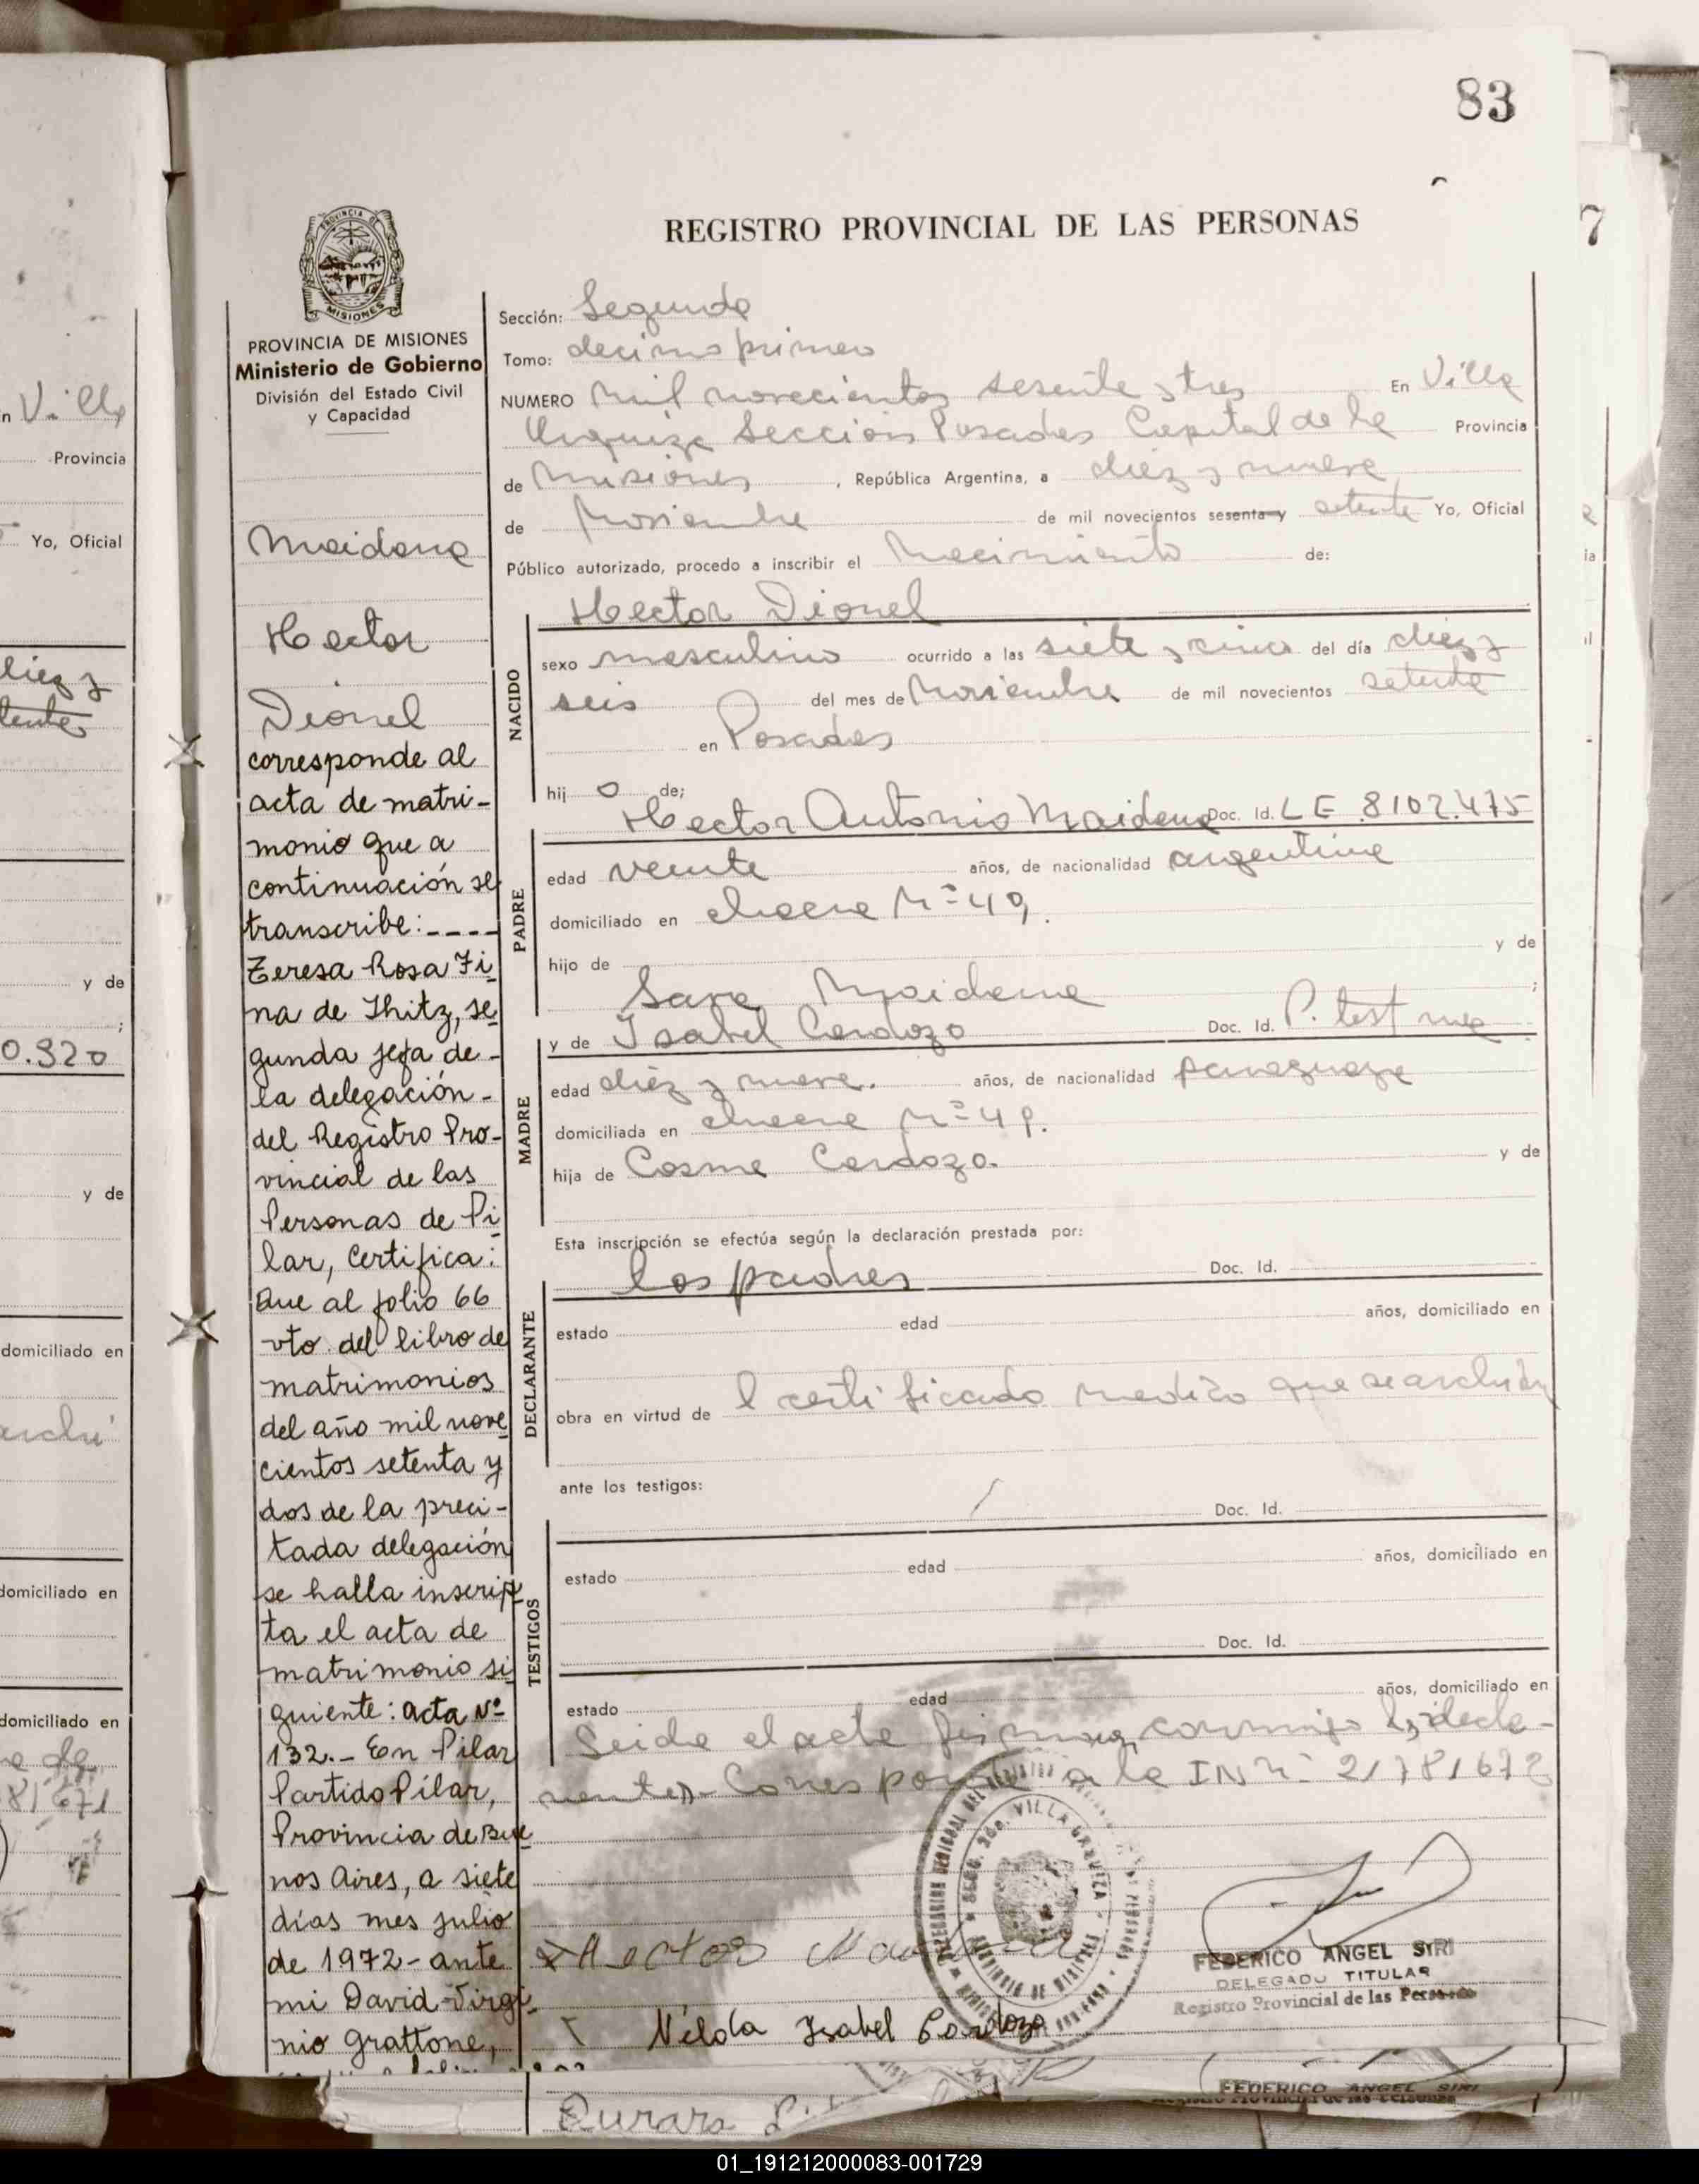 83
REGISTRO PROVINCIAL DE LAS PERSONAS
PROVINCIA DE MISIONES
Ministerio de Gobierno
División del Estado Civil
y Capacidad
Maidana
Hector
Dionel
corresponde al
acta de matri-
monio que a
continuación se
transcribe: ----
Teresa Rosa Fi
na de Ihitz, se
gunda jefa de-
la delegación-
del Registro Pro-
vincial de las
Personas de Pi
lar, Certifica:
Que al folio 66
vto. del libro de
matrimonios
del año mil nove
cientos setenta y
dos de la preci-
tada delegación
se halla inscrip
ta el acta de
matrimonio si
guiente: acta Nº
132.- En Pilar
Partido Pilar,
Provincia de Bue
nos Aires, a siete
días mes julio
de 1972- ante
mi David Virgi-
nio Grattone,
Sección: Segunda
Tomo: decimo primero
NUMERO Mil novecientos sesenta y tres En Villa
Urquiza Seccion Posadas Capital de la Provincia
de Misiones, República Argentina, a diez y nueve
de Noviembre de mil novecientos sesenta y setenta Yo, Oficial
Público autorizado, procedo a inscribir el Nacimiento de:
Hector Dionel
NACIDO
sexo masculino ocurrido a las siete y cinco del día diez y
seis del mes de Noviembre de mil novecientos setenta
en Posadas
hij o de;
Hector Antonio Maidana Doc. Id. LE 8102.475
PADRE
edad veinte años, de nacionalidad argentina
domiciliado en chacra Nº 49.
hijo de y de
Sara Maidana ;
y de Isabel Cardozo Doc. Id. P. test
MADRE
edad diez y nueve. años, de nacionalidad paraguaya
domiciliada en chacra Nº 49.
hija de Cosme Cardozo. y de
Esta inscripción se efectúa según la declaración prestada por:
los padres Doc. Id.
DECLARANTE
estado edad años, domiciliado en
obra en virtud de l certificado medico que se archiva
ante los testigos:
Doc. Id.
TESTIGOS
estado edad años, domiciliado en
Doc. Id.
estado edad años, domiciliado en
Leida el acta firman conmigo decla-
rantes- Corresponde a la IN Nº 21781672
Hector Maidana
Nelda Isabel Cardozo
FEDERICO ANGEL SIRI
DELEGADO TITULAR
Registro Provincial de las Personas
FEDERICO ANGEL SIRI
01_191212000083-001729